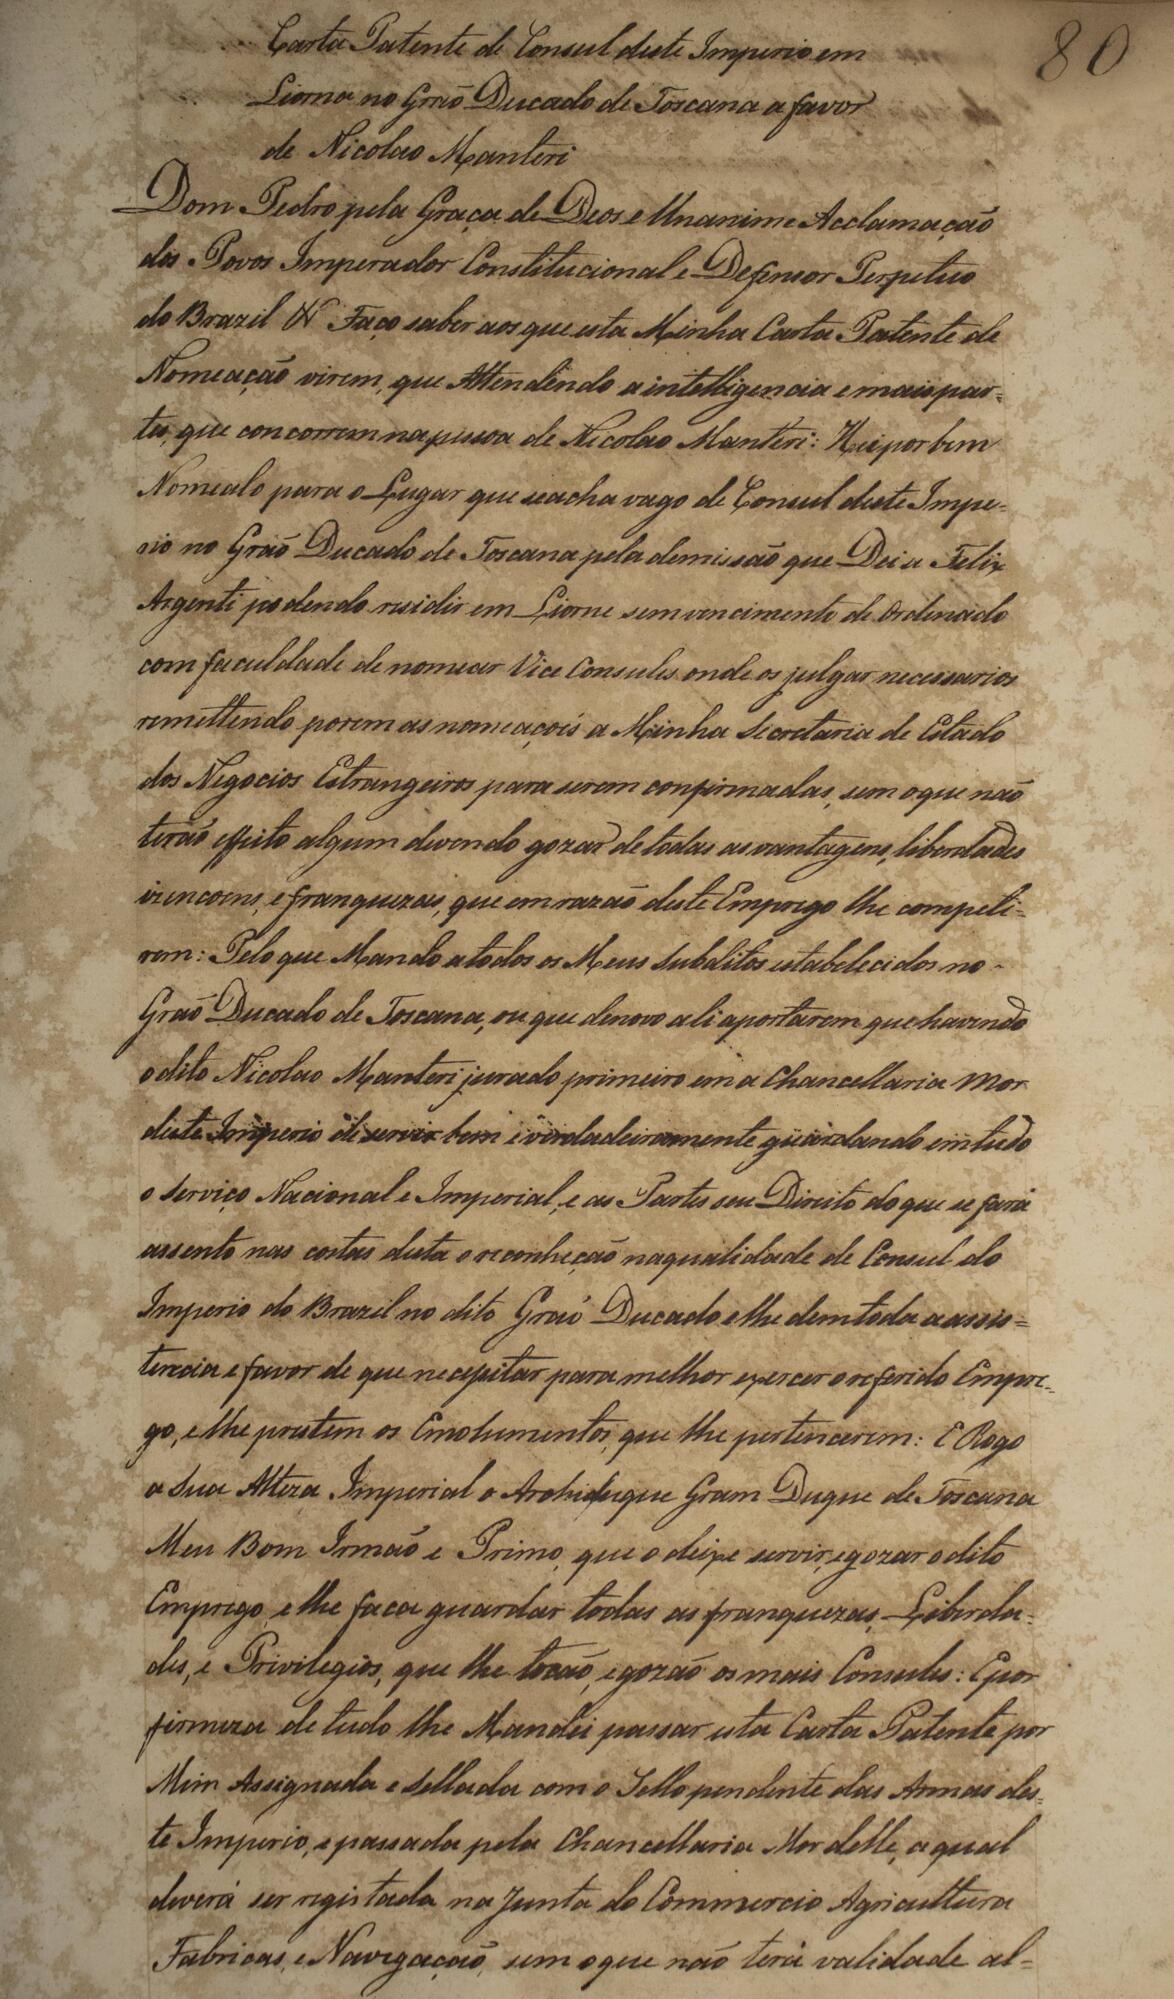 80
Carta Patente de Consul deste Imperio em
Liorna no Graõ Ducado de Toscana a favor
de Nicolao Manteri
Dom Pedro pela Graça de Deos e Unanime Acclamação
dos Povos Imperador Constitucional e Defensor Perpetuo
do Brazil & Faço saber aos que esta Minha Carta Patente de
Nomeação virem, que Attendendo a intelligencia e mais par-
tes, que concorrem na pessoa de Nicolao Manteri: Hei por bem
Nomealo para o Lugar que se acha vago de Consul deste Impe-
rio no Graõ Ducado de Toscana pela demissão que Dei a Felix
Argenti podendo residir em Liorne sem vencimento de Ordenado
com faculdade de nomear Vice Consules onde os julgar necessarios
remettendo porem as nomeações a Minha Secretaria de Estado
dos Negocios Estrangeiros para serem confirmadas, sem o que não
terão effeito algum devendo gozar de todas as vantagens, liberdades
izencoens, e franquezas, que em razão deste Emprego lhe competi-
rem: Pelo que Mando a todos os Meus Subditos estabelecidos no
Graõ Ducado de Toscana, ou que denovo ali aportarem que havendo
o dito Nicolao Manteri jurado primeiro em a Chancellaria Mor
deste Imperio de servir bem e verdadeiramente guardando em tudo
o Serviço Nacional e Imperial, e as Partes seu Direito do que se fará
assento nas costas desta o reconheção na qualidade de Consul do
Imperio do Brazil no dito Graõ Ducado e lhe dem toda a assis-
tencia e favor de que necessitar para melhor exercer o referido Empre-
go, e lhe prestem os Emolumentos, que lhe pertencerem: E Rogo
a Sua Alteza Imperial o Archiduque Gram Duque de Toscana
Meu Bom Irmão e Primo, que o deixe servir, e gozar o dito
Emprego, e lhe faca guardar todas as franquezas, Liberda-
des, e Privilegios, que lhe tocão, e gozão os mais Consules: E por
firmeza de tudo lhe Mandei passar esta Carta Patente por
Mim Assignada e Sellada com o Sello pendente das Armas des-
te Imperio, e passada pela Chancellaria Mor delle, a qual
deverá ser registada na Junta do Commercio Agricultura
Fabricas, e Navegação, sem o que não terá validade al-